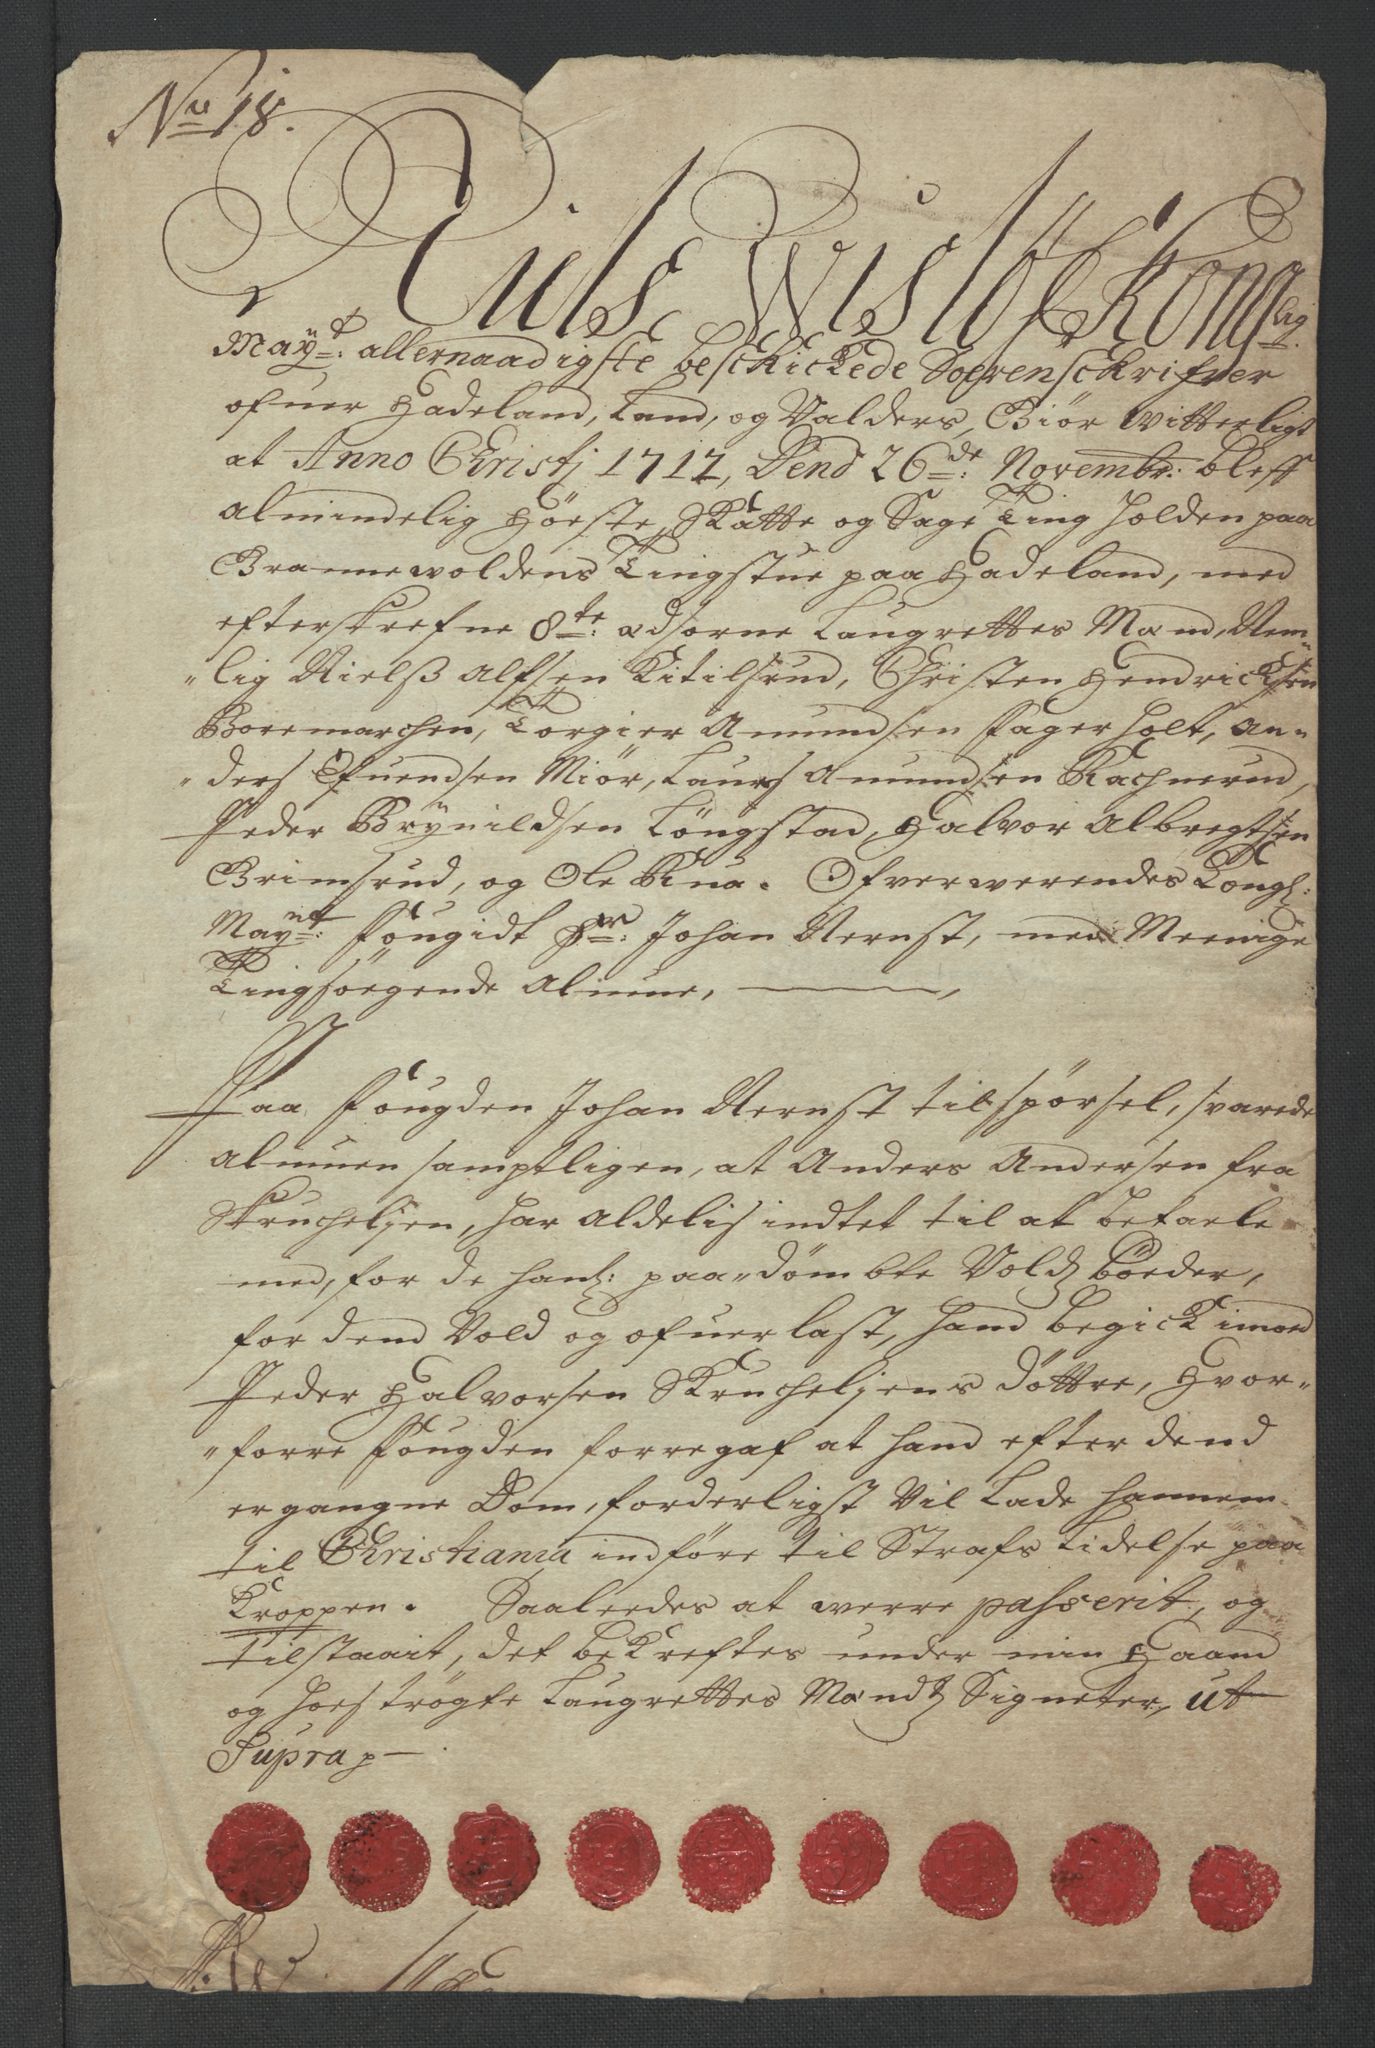 No 18.
Niels Wisløf Kongelig
Mayt: allernaadigste beschickede Soerenschrifver
ofuer Hadeland, Land, og Valders, Giör vitterligt
at Anno Christj 1712, Dend 26de: Novembr: bleff
almindelig Höeste, Skatte og Sage Ting holden paa
Brannevoldens Tingstue paa Hadeland, med
efterskrefne 8te:ædsorne Laugrettes Mænd, Nem-
"lig Nielß Alfsen Kitilsrud, Christen Hendricksen
Boremarchen, Torgier Amundsen Fagerholt, An-
"ders Efuendsen Miör, Laurs Amundsen Rachnerud,
Peder Brynildsen Löngstad, Halvor Albregtsen
Grimsrud, og Ole Rua. Ofverwerendes Kongl:
Maynt: Fougidt Hr: Johan Nernst, med Meenige
Tingsöegende Almue,
Paa Fougden Johan Nernst tilspörsel, svarede
Almuen samptligen, at Anders Andersen fra
Skrucheljen, har aldelis indtet til at betaele
med, for de hanß: paa-dömbte Voldß böeder,
for dend Vold og ofuerlast, hand begick imod
Peder Halvorsen Skrucheljens döttre, Hvor-
"forre Fougden forregaf at hand efter dend
ergangne Dom, forderligst vil lade hannem
til Christiania indföre til Strafs Lidelse paa
Kroppen. Saaleedes at werre passerit, og
tilstaait, det bekreftes under min Haand
og hoeströgte Laugrettes Mændß Signeter, ut
Supra p